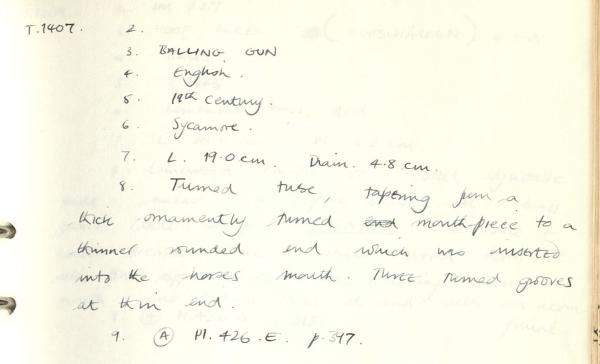 T.1407. 2.
3. BALLING GUN
4. English.
5. 19th Century.
6. Sycamore.
7. L. 19.0cm. Diam. 4.8 cm.
8. Turned tube, tapering from a
thick ornamently turned end mouth-piece to a
thinner rounded end which was inserted
into the horses mouth. Three turned grooves
at thin end.
9. A Pl. 426.E. p.397.